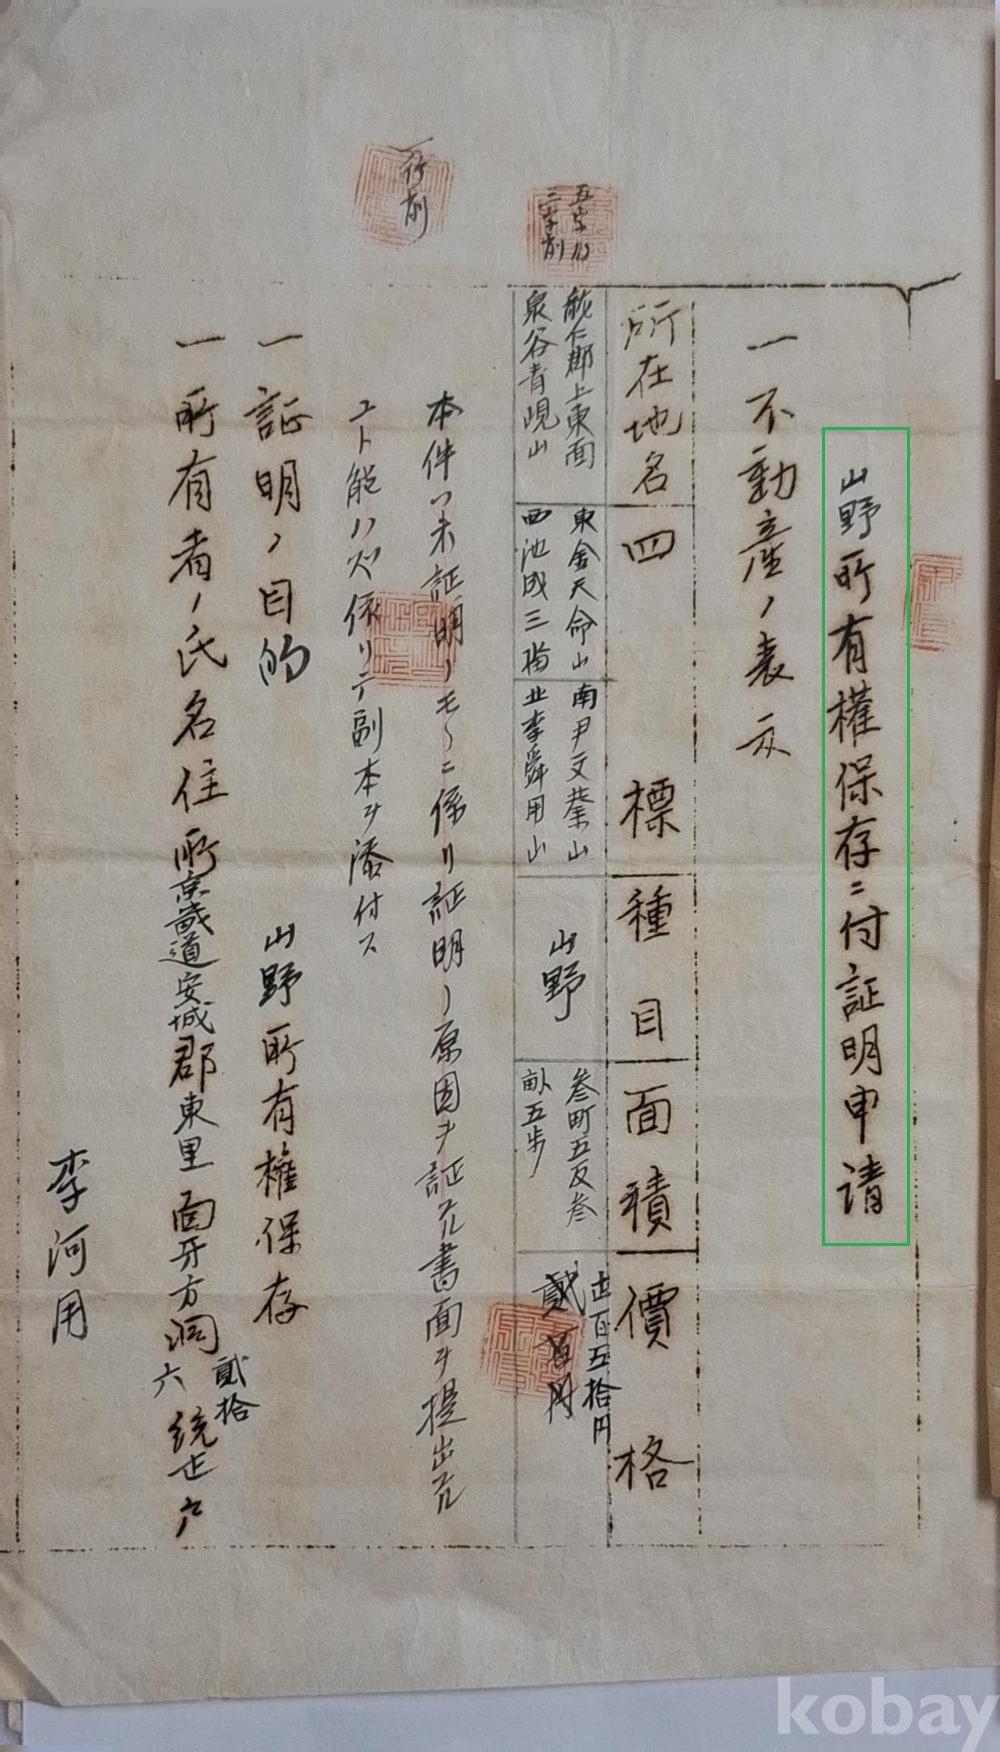 山野所有權保存ニ付証明申请
一不動産ノ表示
所在地名
四標
種目
面積
價格
能仁郡上東面
泉谷青峴山
東金天命山
西池成三墦
南尹文榮山
北李舜用山
山野
叁町五反叁
畝五步
壱百五拾円
貳百円
五字加
三字削
本件ハ未証明ノモノニ係リ証明ノ原因ヲ証スル書面ヲ提出スル
コト能ハズ依リテ副本ヲ添付ス
一行削
一証明ノ目的 山野所有權保存
一所有者ノ氏名住所京畿道安城郡東里面牙方洞
貳拾
六統上戶
李河用
kobay